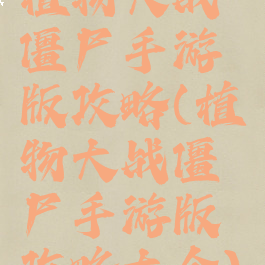 植物大战
僵尸手游
版攻略(植
物大战僵
尸手游版
攻略大全)